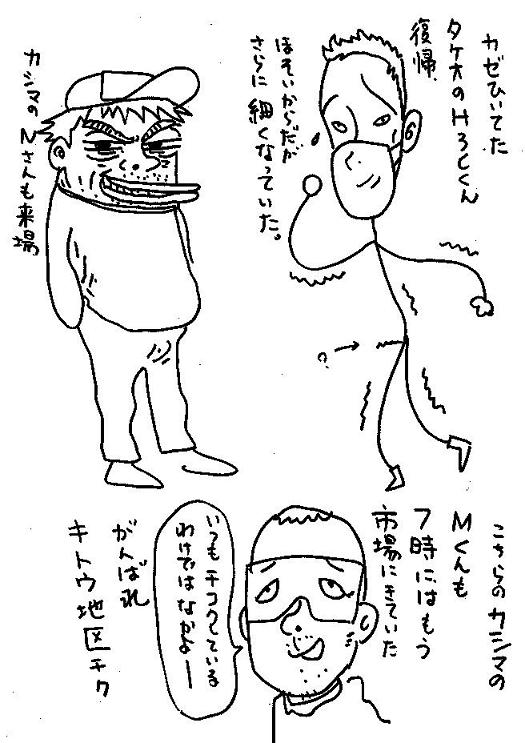 カゼひいてた
タケオのHろしくん
復帰
ほそいからだが
さらに細くなっていた。
?→
カシマの
Nさんも来場
こちらのカシマの
Mくんも
7時にはもう
市場にきていた
いつもチコクしている
わけではなかよー
がんばれ
キトウ地区チク